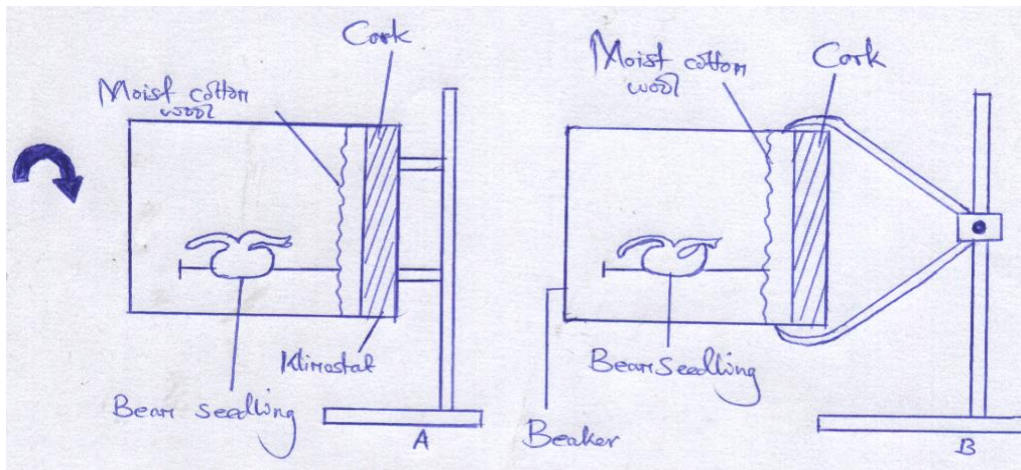 Cork
Moist cotton
wool
Klinostat
Bean seedling
A
Moist cotton
wool
Cork
Bean seedling
Beaker
B